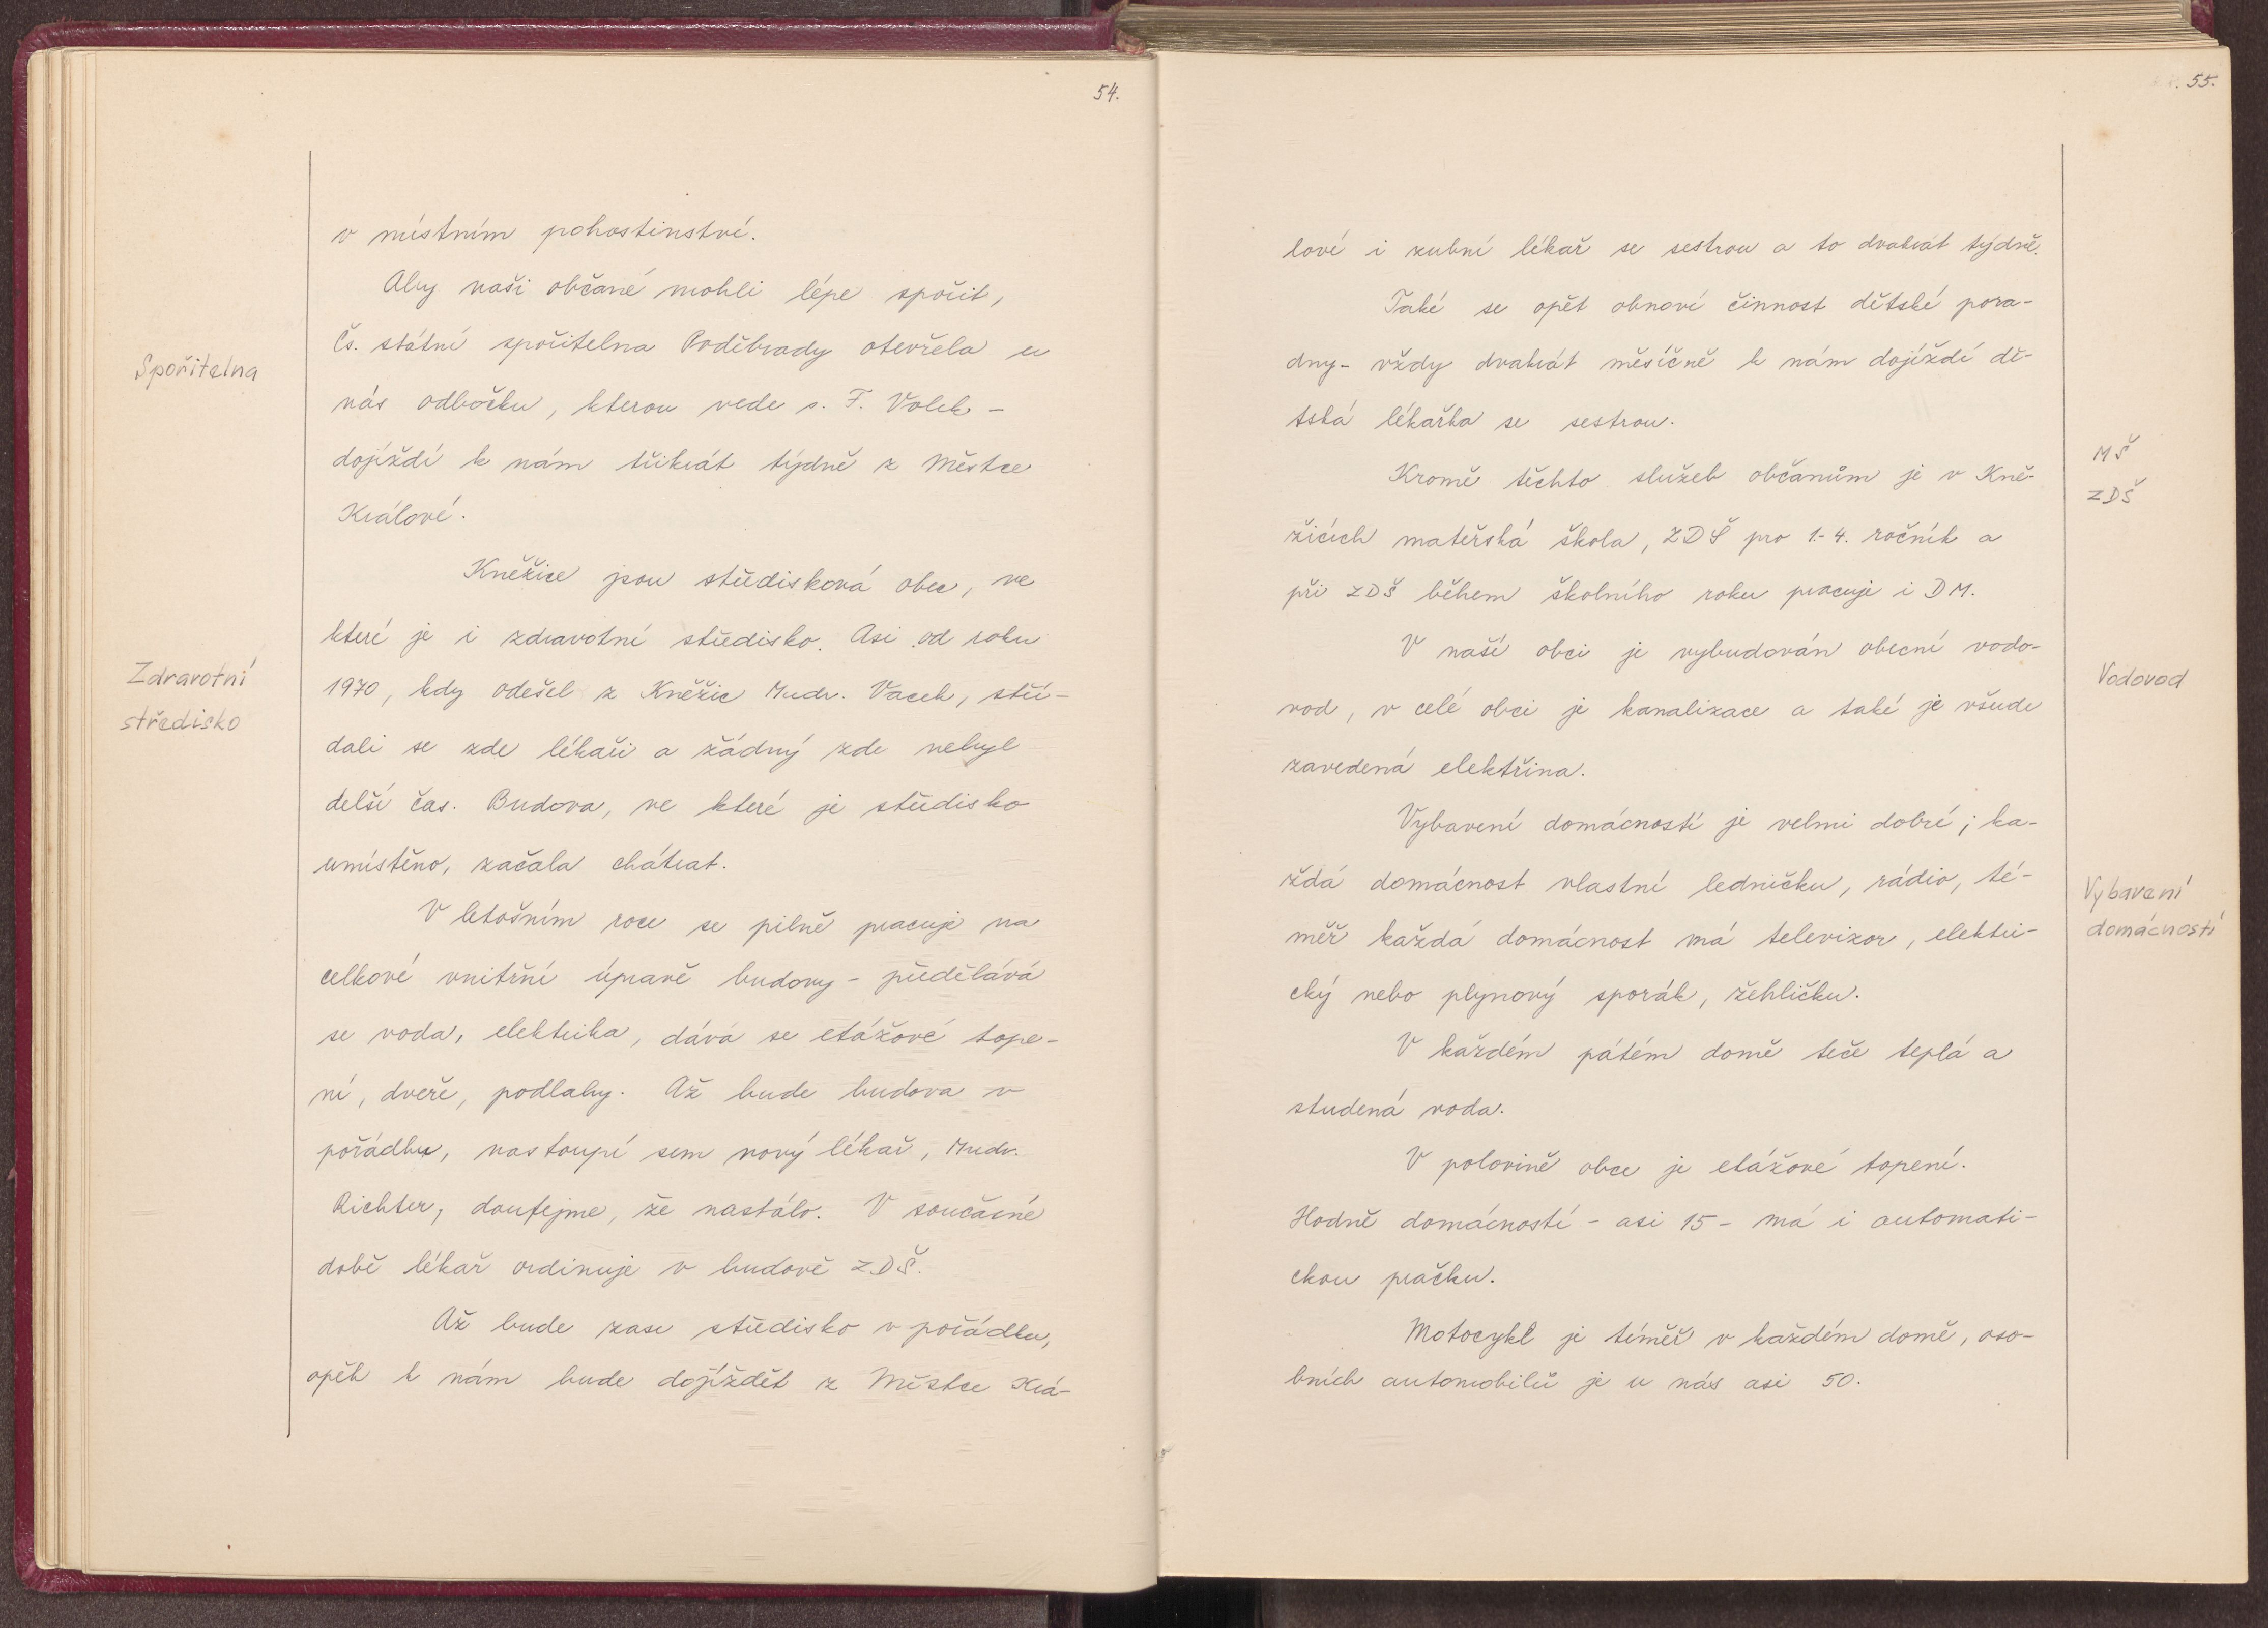 54.
v místním pohostinství.
Aby naši občané mohli lépe spořit,
Čs. státní spořitelna Poděbrady otevřela u
Spořitelna
nás odbočku, kterou vede s. F. Volek -
dojíždí k nám třikrát týdně z Městce
Králové.
Kněžice jsou středisková obec, ve
které je i zdravotní středisko. Asi od roku
Zdravotní
středisko
1970, kdy odešel z Kněžic Mudr. Vacek, stří-
dali se zde lékaři a žádný zde nebyl
delší čas. Budova, ve které je středisko
umístěno, začala chátrat.
V letošním roce se pilně pracuje na
celkové vnitřní úpravě budovy - předělává
se voda, elektrika, dává se etážové tope-
ní, dveře, podlahy. Až bude budova v
pořádku, nastoupí sem nový lékař, Mudr.
Richter, doufejme, že nastálo. V současné
době lékař ordinuje v budově ZDŠ.
Až bude zase středisko v pořádku,
opět k nám bude dojíždět z Městce Krá-
55.
lové i zubní lékař se sestrou a to dvakrát týdně.
Také se opět obnoví činnost dětské pora-
dny - vždy dvakrát měsíčně k nám dojíždí dě-
tská lékařka se sestrou.
MŠ
ZDŠ
Kromě těchto služeb občanům je v Kně-
žicích mateřská škola, ZDŠ pro 1.-4. ročník a
při ZDŠ během školního roku pracuje i DM.
V naší obci je vybudován obecní vodo-
Vodovod
vod, v celé obci je kanalizace a také je všude
zavedená elektřina.
Vybavení domácností je velmi dobré; ka-
ždá domácnost vlastní ledničku, rádio, té-
Vybavení
domácností
měř každá domácnost má televizor, elektri-
cký nebo plynový sporák, žehličku.
V každém pátém domě teče teplá a
studená voda.
V polovině obce je etážové topení.
Hodně domácností - asi 15 - má i automati-
ckou pračku.
Motocykl je téměř v každém domě, oso-
bních automobilů je u nás asi 50.